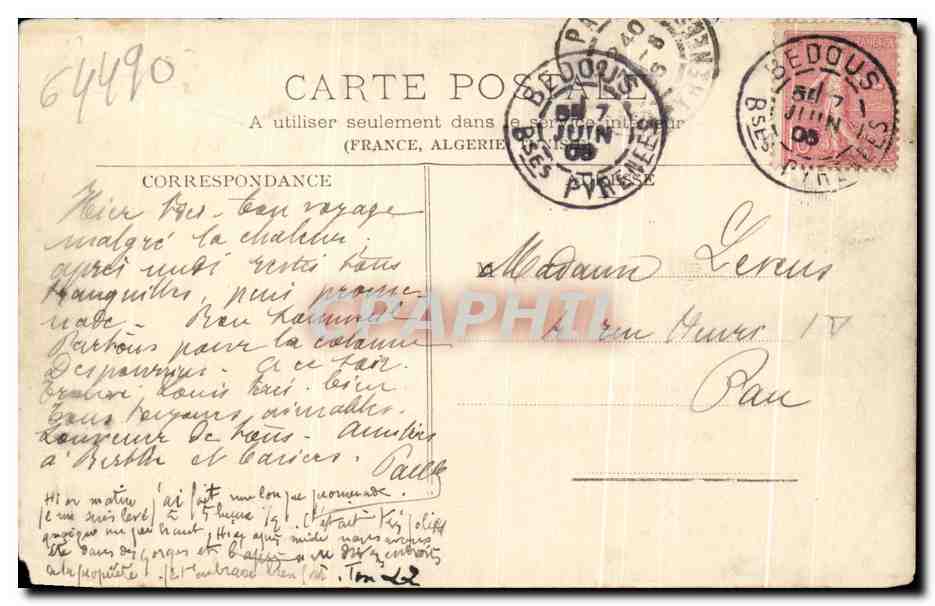 64490
CARTE POSTALE
A utiliser seulement dans le service intérieur
(FRANCE, ALGERIE
CORRESPONDANCE
BEDOUS
7
JUIN
05
Bses PYRENEES
BEDOUS
7
JUIN
05
Bses PYRENEES
Hier très bon voyage
malgré la chaleur,
après midi restés tous
tranquilles, puis prome-
nade. Bon sommeil
Partons pour la colonne
Despourrins. A ce soir.
Trouvé Louis très bien
Tous toujours aimables.
Souvenir de tous. Amitiés
à Berthe et
Madame
rue Henri IV
Pau
CPAPHIL
Hier matin j'ai fait une longue promenade.
je me suis levé à 5 heure 1/2. C'était très joli
quoique un peu haut, Hier après midi nous avons
été dans des gorges et
à la propriété. Je t'embrasse bien fort. Ton